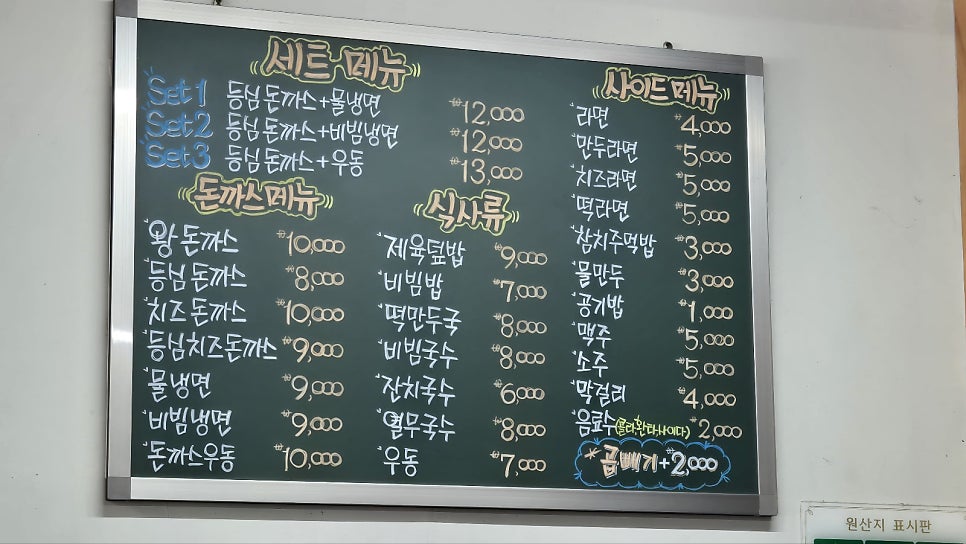 세트 메뉴
Set 1 등심 돈까스+물냉면 ₩12,000
Set 2 등심 돈까스+비빔냉면 ₩12,000
Set 3 등심 돈까스+우동 ₩13,000
돈까스메뉴
왕 돈까스 ₩10,000
등심 돈까스 ₩8,000
치즈 돈까스 ₩10,000
등심치즈돈까스 ₩9,000
물냉면 ₩9,000
비빔냉면 ₩9,000
돈까스우동 ₩10,000
식사류
제육덮밥 ₩9,000
비빔밥 ₩7,000
떡만두국 ₩8,000
비빔국수 ₩8,000
잔치국수 ₩6,000
열무국수 ₩8,000
우동 ₩7,000
사이드메뉴
라면 ₩4,000
만두라면 ₩5,000
치즈라면 ₩5,000
떡라면 ₩5,000
참치주먹밥 ₩3,000
물만두 ₩3,000
공기밥 ₩1,000
맥주 ₩5,000
소주 ₩5,000
막걸리 ₩4,000
음료수(콜라,환타,사이다) ₩2,000
*곱빼기+₩2,000
원산지 표시판